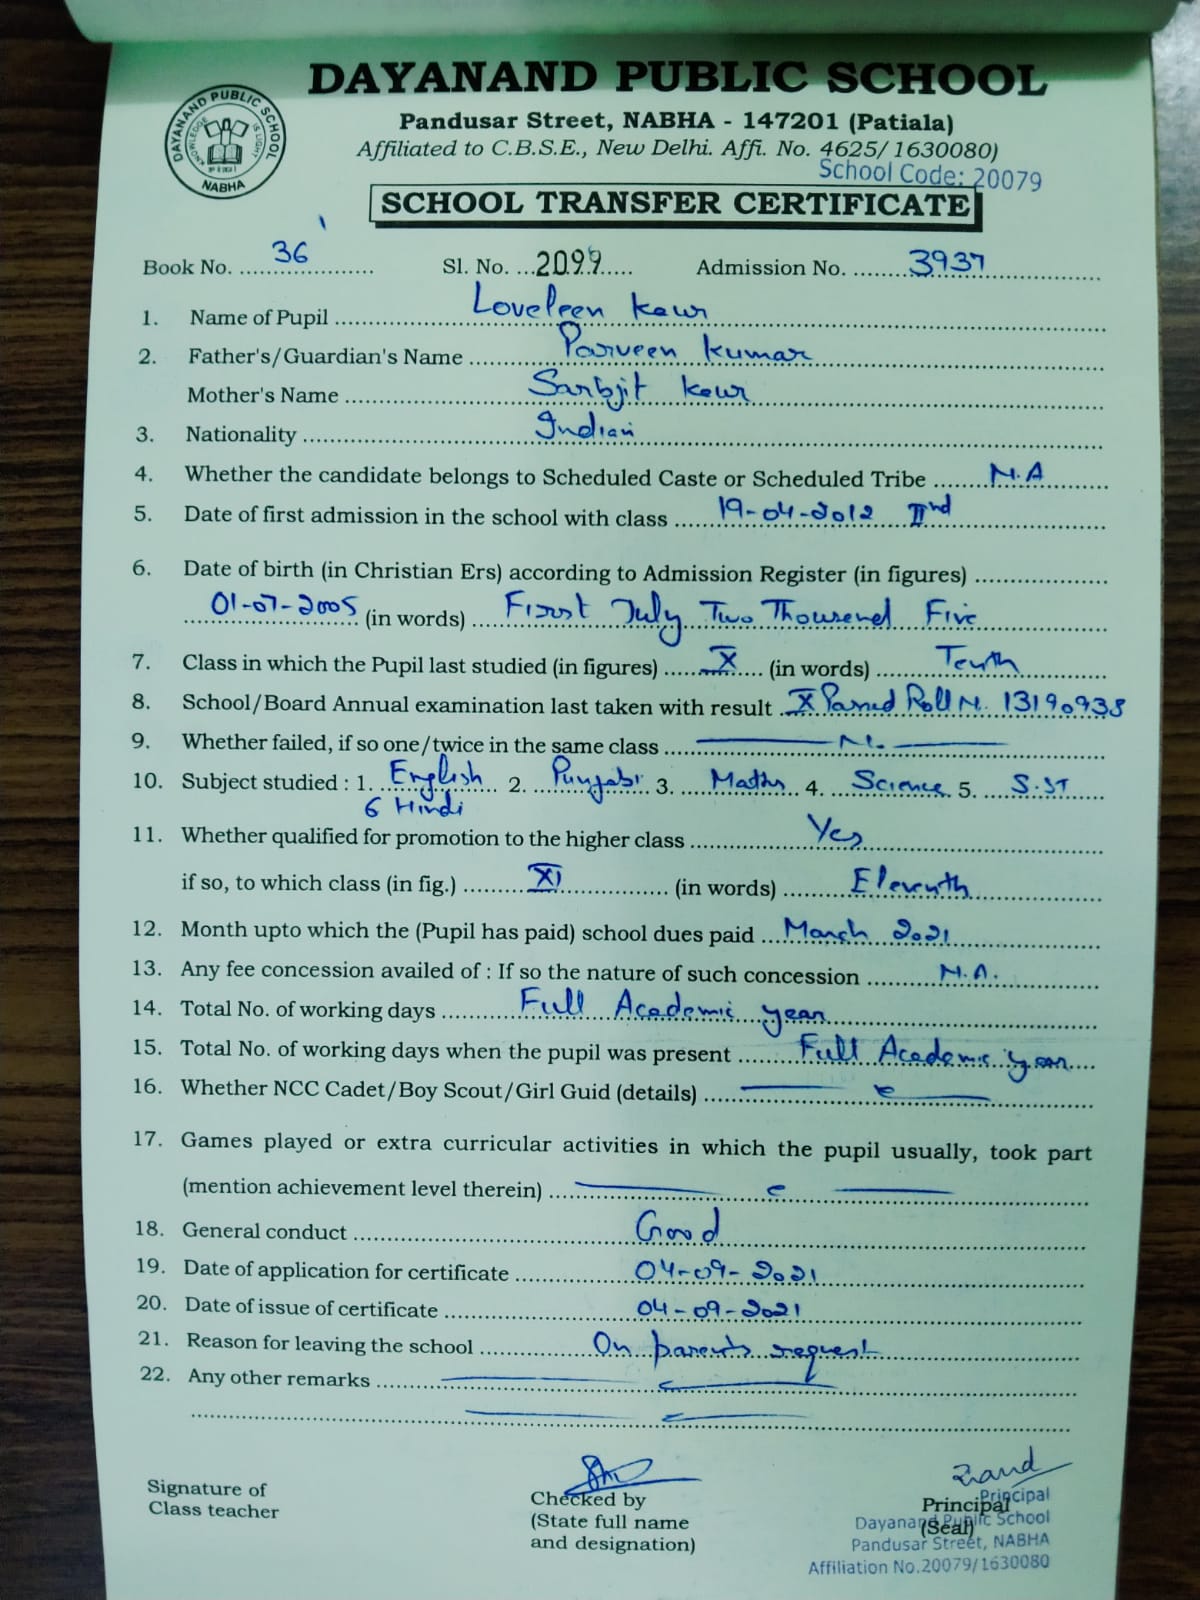 DAYANAND PUBLIC SCHOOL
DAYANAND PUBLIC SCHOOL
KNOWLEDGE IS LIGHT
NABHA
Pandusar Street, NABHA - 147201 (Patiala)
Affiliated to C.B.S.E., New Delhi. Affi. No. 4625/ 1630080)
School Code: 20079
SCHOOL TRANSFER CERTIFICATE
Book No. 36 Sl. No. 2099 Admission No. 3937
1. Name of Pupil Loveleen Kaur
2. Father's/Guardian's Name Parveen Kumar
Mother's Name Sarbjit Kaur
3. Nationality Indian
4. Whether the candidate belongs to Scheduled Caste or Scheduled Tribe N.A
5. Date of first admission in the school with class 19-04-2012 IInd
6. Date of birth (in Christian Ers) according to Admission Register (in figures)
01-07-2005 (in words) First July Two Thousend Five
7. Class in which the Pupil last studied (in figures) X (in words) Tenth
8. School/Board Annual examination last taken with result X Passed Roll N. 13190938
9. Whether failed, if so one/twice in the same class
10. Subject studied : 1. English 2. Punjabi 3. Maths 4. Science 5. S.ST
6 Hindi
11. Whether qualified for promotion to the higher class Yes
if so, to which class (in fig.) XI (in words) Eleventh
12. Month upto which the (Pupil has paid) school dues paid March 2021
13. Any fee concession availed of : If so the nature of such concession N.A.
14. Total No. of working days Full Academic year
15. Total No. of working days when the pupil was present Full Academic year
16. Whether NCC Cadet/Boy Scout/Girl Guid (details)
17. Games played or extra curricular activities in which the pupil usually, took part
(mention achievement level therein)
18. General conduct Good
19. Date of application for certificate 04-09-2021
20. Date of issue of certificate 04-09-2021
21. Reason for leaving the school On parents request
22. Any other remarks
Signature of
Class teacher
Checked by
(State full name
and designation)
Principal
(Seal)
Principal
Dayanand Public School
Pandusar Street, NABHA
Affiliation No.20079/1630080